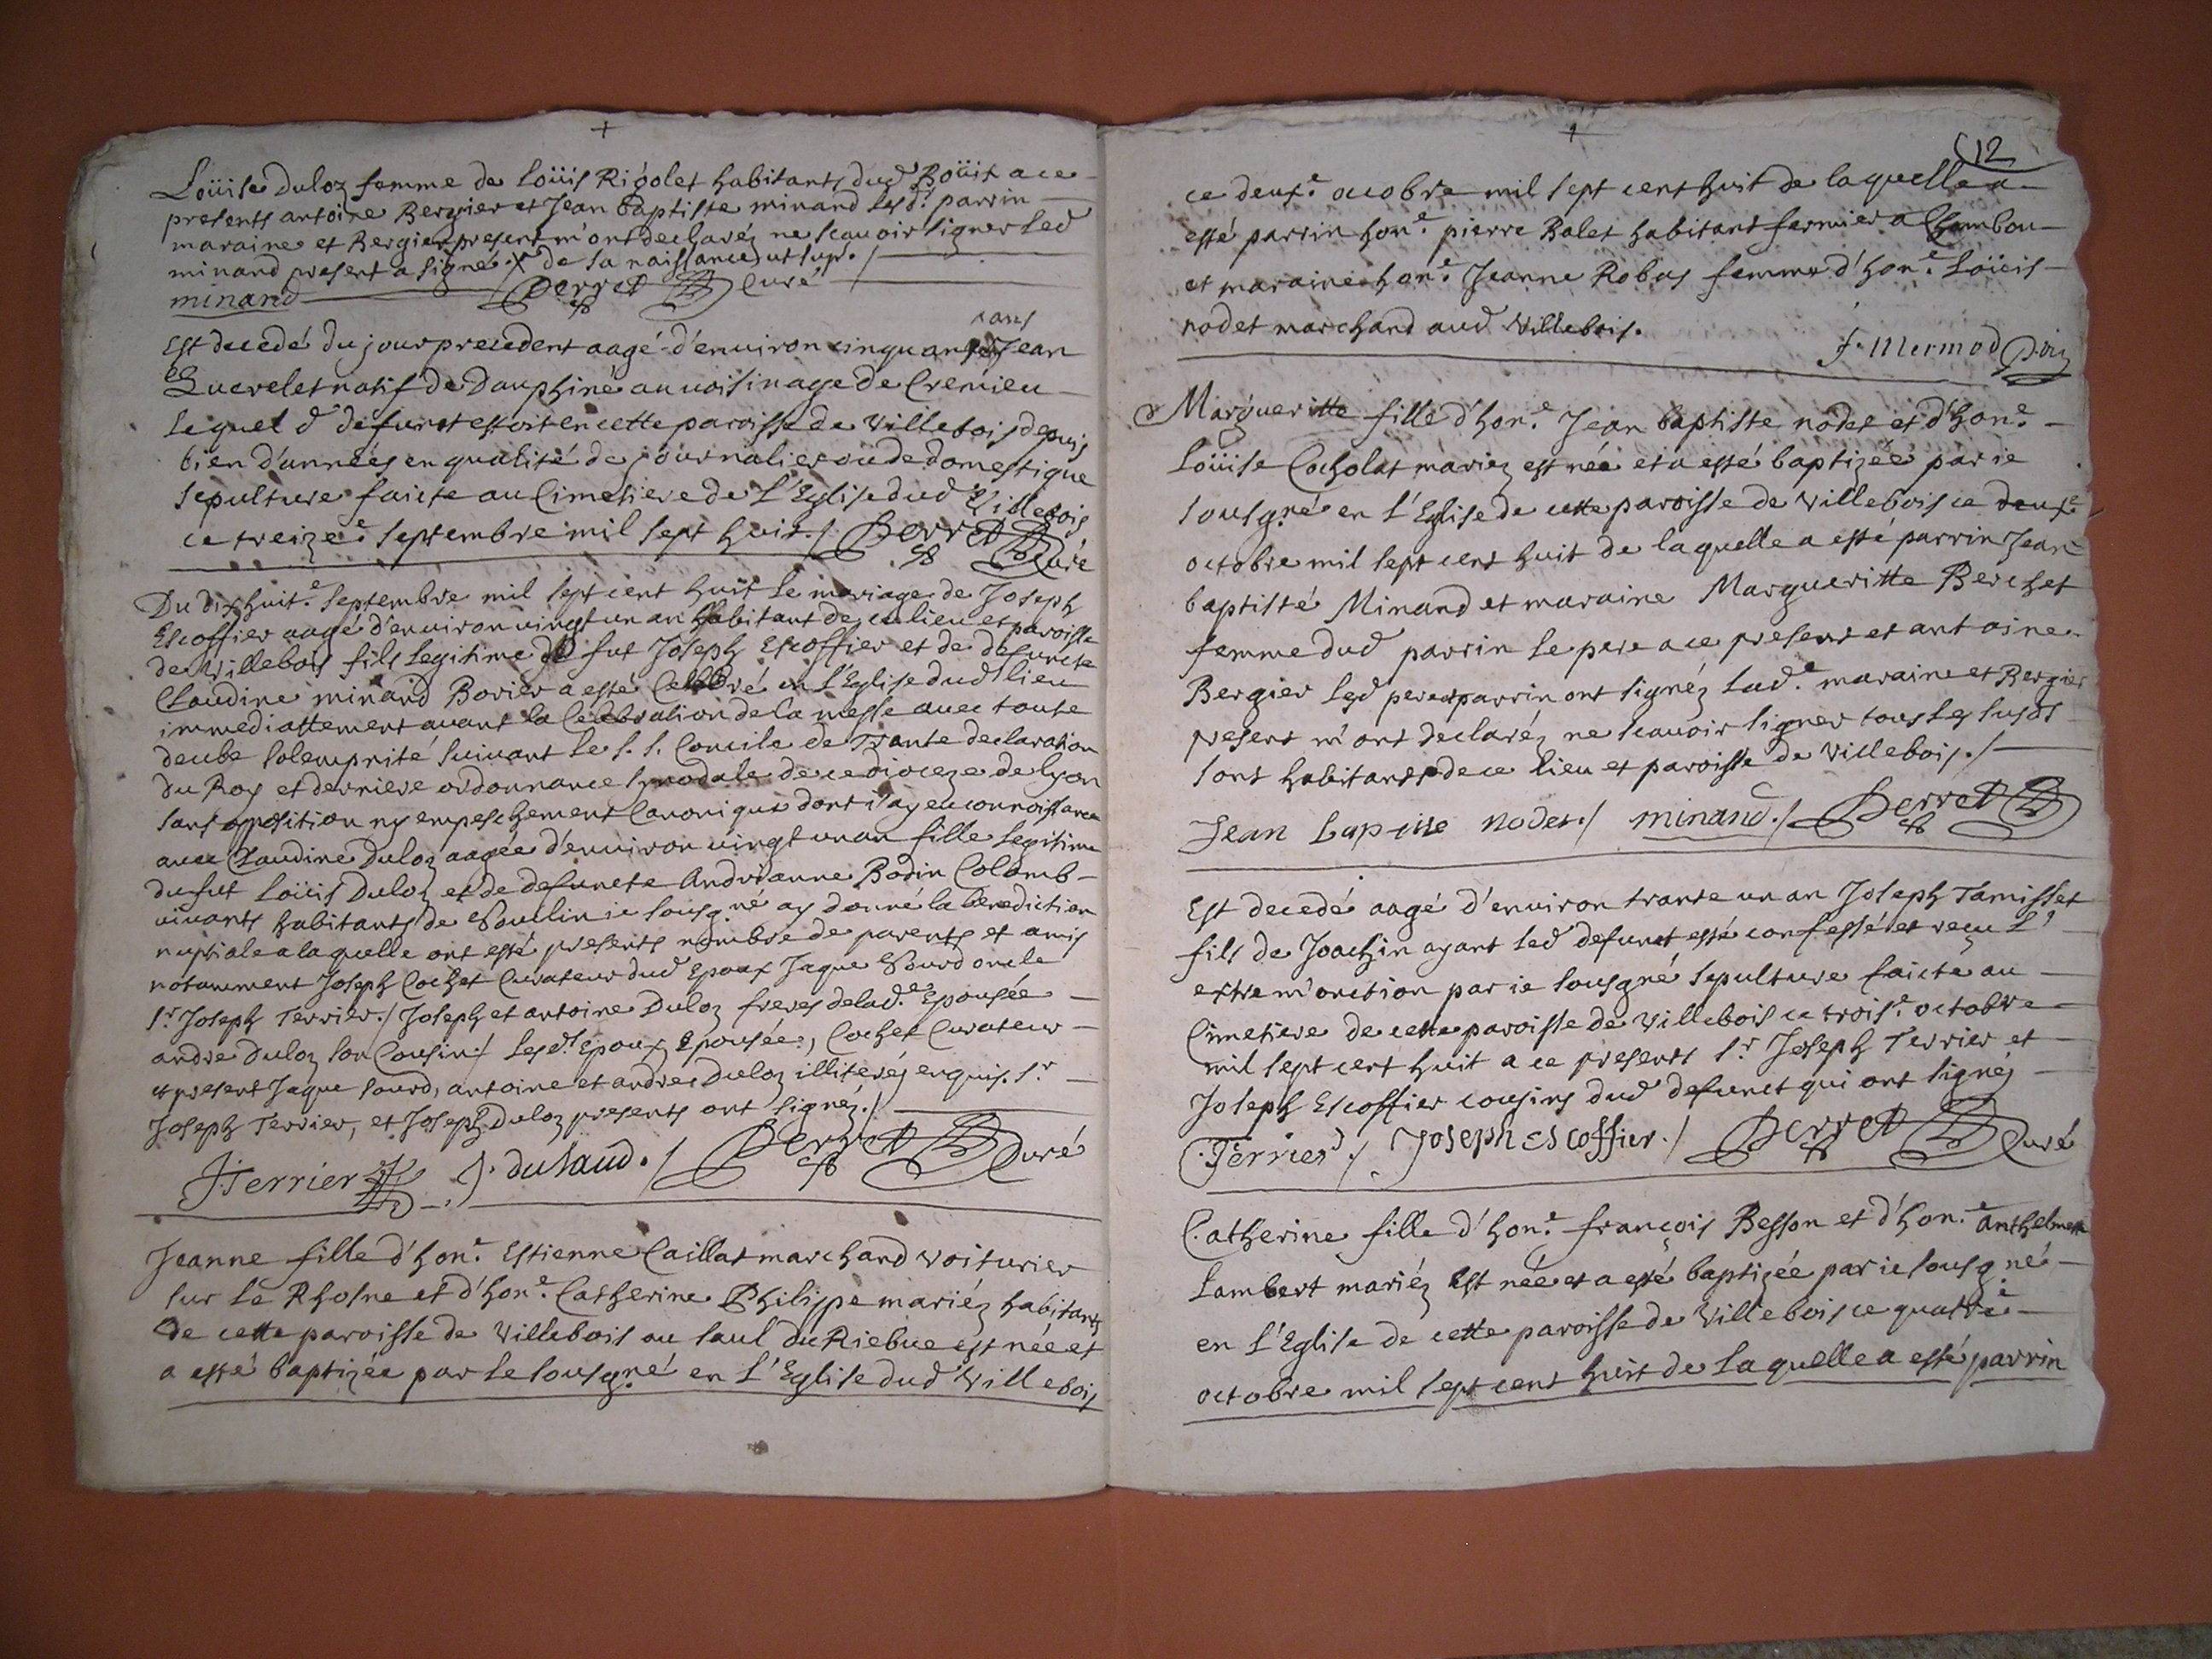 Loüise Duloz femme de Loüis Rigolet habitants dud Boüis a ce
presents antoine Bergier et Jean baptiste minand lesd.ts parrin
maraine et Bergier present m'ont declaréz ne scauoir signer led
minand present a signé. X de sa naissance ut sup. /
minand Perret Curé
ans
Est decedé du jour precedent aagé d'enuiron cinquante Jean
Lucrelet natif de Dauphiné au uoisinage de Cremieu
lequel d defunct estoit en cette paroisse de Villebois depuis
bien d'années en qualité de journalier ou de domestique
sepulture faicte au Cimetiere de L'Eglise dud Villebois
ce treize.e septembre mil sept huit. / Perret Curé
Du dix huit.e septembre mil sept cent huit le mariage de Joseph
Escoffier aagé d'enuiron uingt un an habitant de ce lieu et paroisse
de Villebois fils legitime de fut Joseph Escoffier et de defuncte
Claudine minand Borier a esté Celebré en l'Eglise dud lieu
immediattement auant la Celebration de la messe auec toute
deube solempnité suiuant le s. s. Concile de Trante declaration
du Roy et derniere ordonnance synodale de ce dioceze de lyon
sans opposition ny empeschement Canonique dont i'ay eu connoissance
auec Claudine Duloz aagée d'enuiron uingt un an fille legitime
du fut Loüis Duloz et de defuncte Andrianne Bodin Colomb
uiuants habitants de ie sousg.né ay donné la benediction
nuptiale a laquelle ont esté presents nombre de parents et amis
notamment Joseph Cochet Curateur dud Epoux Jaque Sourd oncle
s.r Joseph Terrier. / Joseph et antoine Duloz freres de lad.e Epousée
andre duloz son Cousin. / lesd.ts Epoux Epousée, Cochet Curateur
et present Jaque sourd, antoine et andre Duloz illiteréz enquis. s.r
Joseph Terrier, et Joseph Duloz presents ont signéz. /
J Terrier J. duLaud. / Perret Curé
Jeanne fille d'hon.e Estienne Caillat marchand voiturier
sur le Rhosne et d'hon.e Catherine Philippe mariéz habitants
de cette paroisse de Villebois au saul du Riebue est née et
a esté baptizée par le sousg.né en l'Eglise dud Villebois
12
ce deux.e ocobre mil sept cent huit de laquelle a
esté parrin hon.e pierre Balet habitant fermier a Chambou
et maraine hon.e Jeanne Robas femme d'hon.e Loüis
nodet marchand aud Villebois.
f. Mermod
Margueritte fille d'hon.e Jean baptiste nodet et d'hon.e
Loüise Cocholat mariez est née et a esté baptizée par ie
sousg.né en l'Eglise de cette paroisse de Villebois ce deux.e
octobre mil sept cent huit de laquelle a esté parrin Jean
baptisté Minand et maraine Margueritte Berchet
femme dud parrin le pere a ce present et antoine
Bergier lesd pere et parrin ont signéz lad.e maraine et Bergier
present m'ont declaréz ne scauoir signer tous les susdts
sont habitants de ce lieu et paroisse de Villebois. /
Jean bapiste nodet. / minand. / Perret
Est decedé aagé d'enuiron trante un an Joseph Tamisset
fils de Joachin ayant led defunct esté confessé et reçu l'
extrem'onction par ie sousgné sepulture faicte au
Cimetiere de cette paroisse de Villebois ce trois.e octobre
mil sept cent huit a ce presents s.r Joseph Terrier et
Joseph Escoffier cousins dud defunct qui ont signéz
Terrier. / Joseph Escoffier. / Perret Curé
Catherine fille d'hon.e françois Besson et d'hon.e anthelmette
Lambert mariéz est née et a esté baptizée par ie sousgné
en l'Eglise de cette paroisse de Villebois ce quatre.e
octobre mil sept cent huit de laquelle a esté parrin